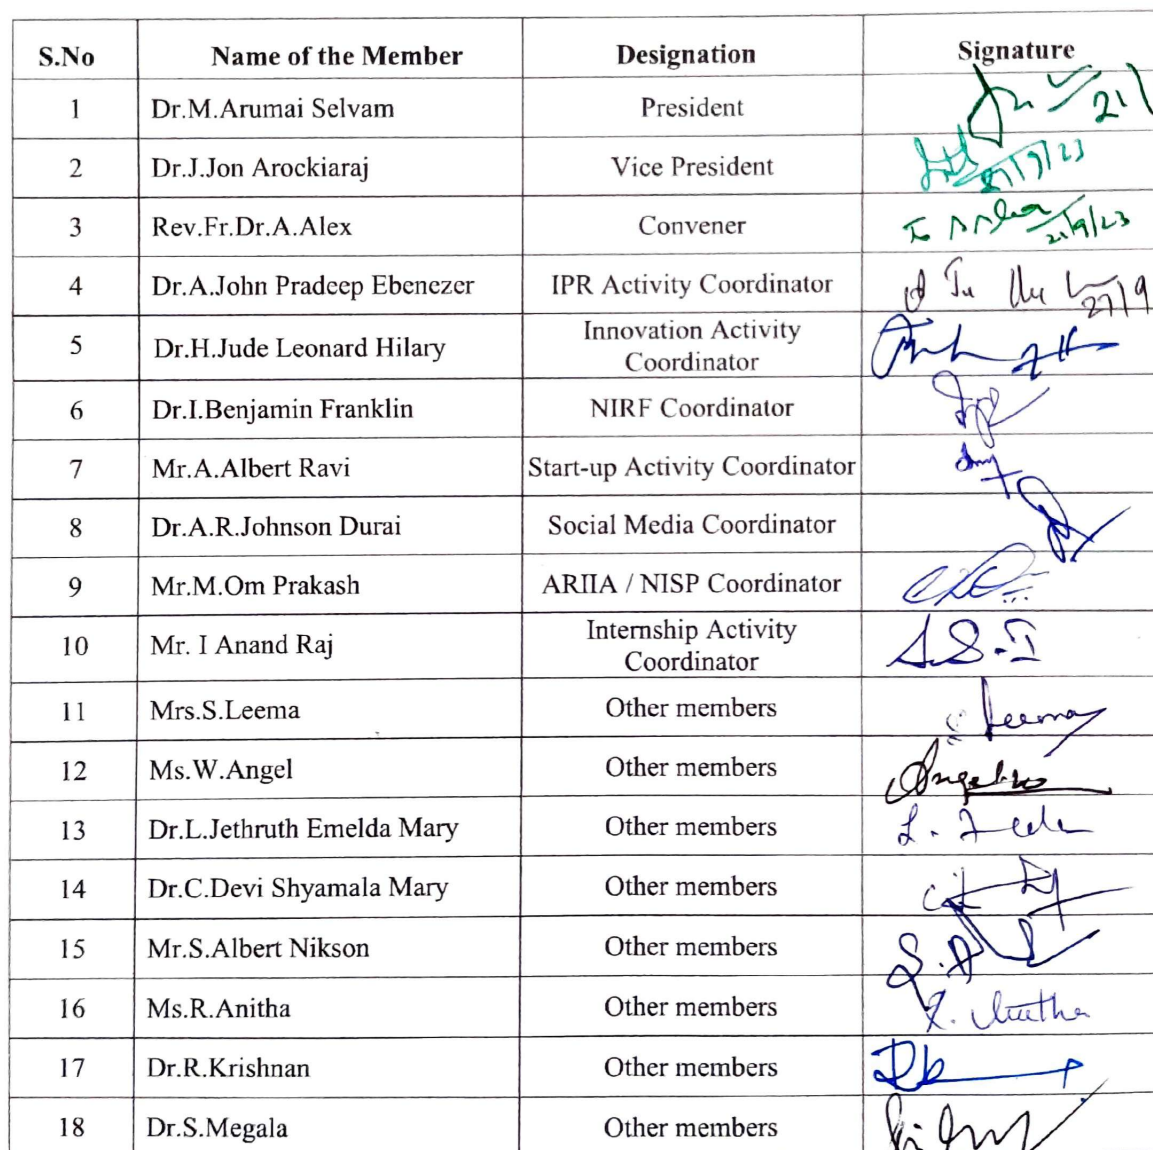 S.No Name of the Member Designation Signature
1 Dr.M.Arumai Selvam President 21
2 Dr.J.Jon Arockiaraj Vice President 21/9/23
3 Rev.Fr.Dr.A.Alex Convener 21/9/23
4 Dr.A.John Pradeep Ebenezer IPR Activity Coordinator 27/9
5 Dr.H.Jude Leonard Hilary Innovation Activity
Coordinator
6 Dr.I.Benjamin Franklin NIRF Coordinator
7 Mr.A.Albert Ravi Start-up Activity Coordinator
8 Dr.A.R.Johnson Durai Social Media Coordinator
9 Mr.M.Om Prakash ARIIA / NISP Coordinator
10 Mr. I Anand Raj Internship Activity
Coordinator
11 Mrs.S.Leema Other members S Leema
12 Ms.W.Angel Other members
13 Dr.L.Jethruth Emelda Mary Other members
14 Dr.C.Devi Shyamala Mary Other members
15 Mr.S.Albert Nikson Other members
16 Ms.R.Anitha Other members R. Anitha
17 Dr.R.Krishnan Other members
18 Dr.S.Megala Other members